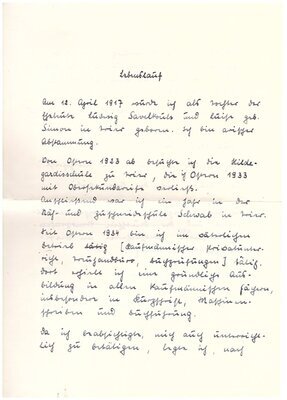 Lebenslauf
Am 12. April 1917 wurde ich als Tochter der
Eheleute Ludwig Savelkouls und Luise geb.
Simon in Trier geboren. Ich bin arischer
Abstammung.
Von Ostern 1923 ab besuchte ich die Hilde-
gardisschule zu Trier, die ich Ostern 1933
mit Obersekundareife verliess.
Anschliessend war ich ein Jahr in der
Näh- und Zuschneideschule Schwab in Trier.
Seit Ostern 1934 bin ich im väterlichen
Betrieb tätig [Kaufmännischer Privatunter-
richt, Treuhandbüro, Buchprüfungen] tätig.
Dort erhielt ich eine gründliche Aus-
bildung in allen kaufmännischen Fächern,
insbesondere in Kurzschrift, Maschinen-
schreiben und Buchführung.
Da ich beabsichtige, mich auch unterricht-
lich zu betätigen, legte ich, nach